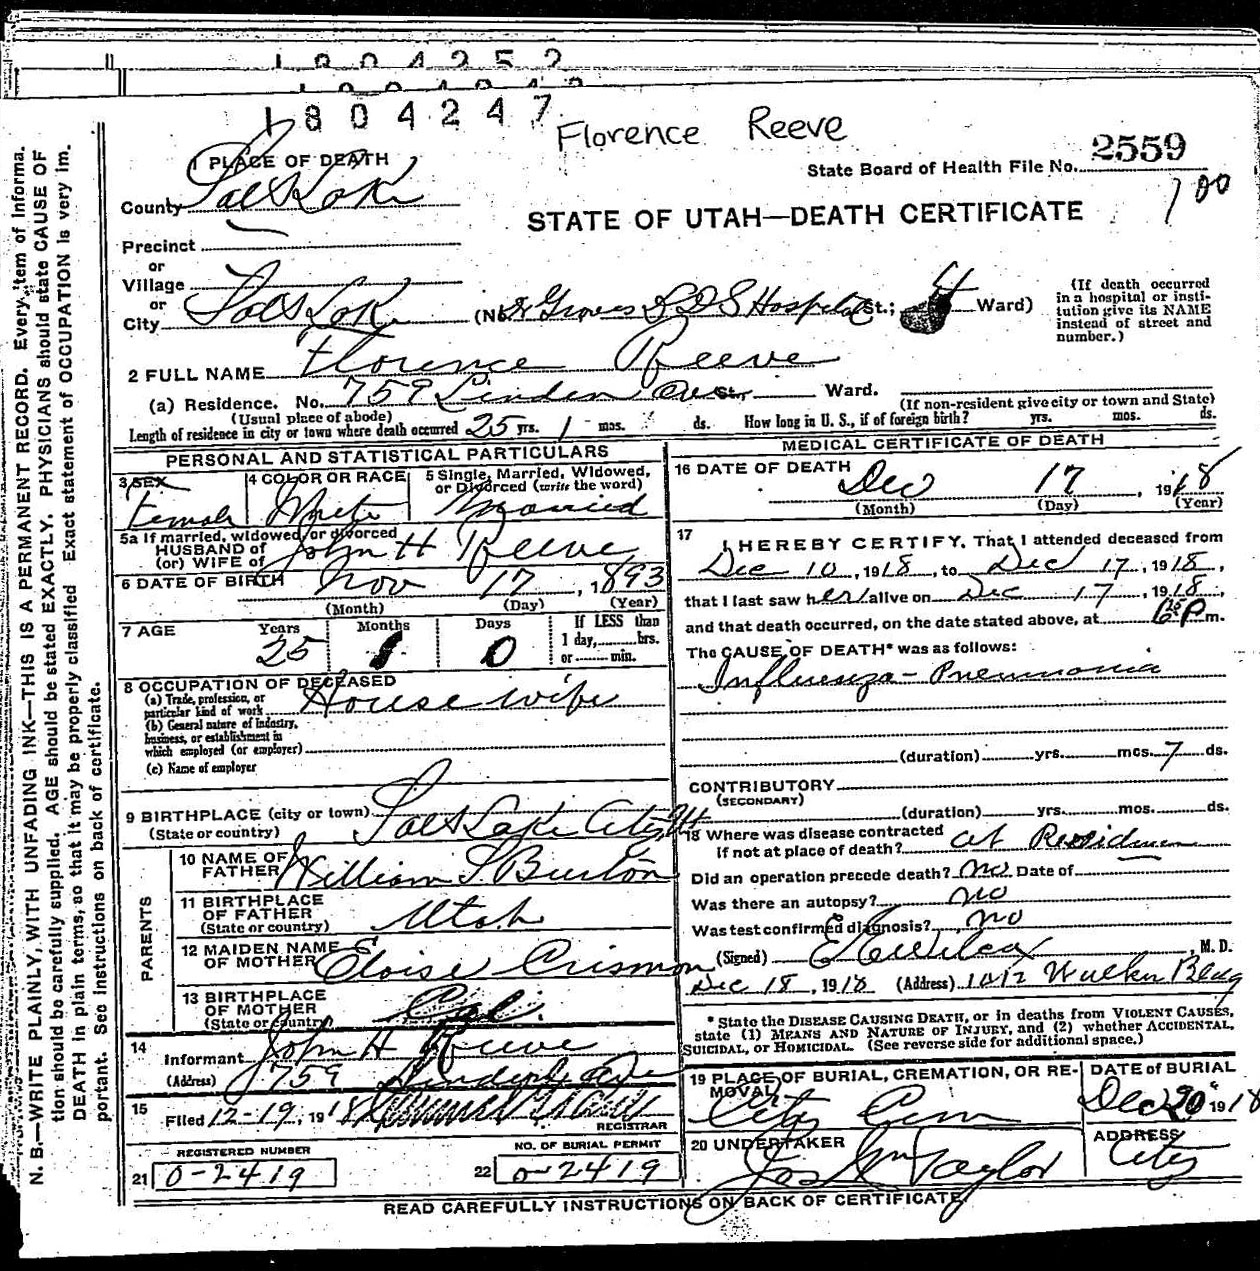 1804252
1804247
Florence Reeve
State Board of Health File No. 2559
1 PLACE OF DEATH
County Salt Lake
STATE OF UTAH—DEATH CERTIFICATE
Precinct
or
Village
or
City Salt Lake (No. Dr Groves LDS Hospital St.; 4 Ward)
(If death occurred in a hospital or insti-
tution give its NAME
instead of street and
number.)
2 FULL NAME Florence Reeve
(a) Residence. No. 759 Linden Ave St., Ward.
(Usual place of abode) (If non-resident give city or town and State)
Length of residence in city or town where death occurred 25 yrs. 1 mos. ds. How long in U. S., if of foreign birth? yrs. mos. ds.
PERSONAL AND STATISTICAL PARTICULARS
3 SEX Female
4 COLOR OR RACE White
5 Single, Married, Widowed,
or Divorced (write the word) Married
5a If married, widowed, or divorced
HUSBAND of
(or) WIFE of John H Reeve
6 DATE OF BIRTH Nov 17, 1893
(Month) (Day) (Year)
7 AGE Years 25 Months 1 Days 0
If LESS than
1 day, hrs.
or min.
8 OCCUPATION OF DECEASED
(a) Trade, profession, or
particular kind of work House wife
(b) General nature of industry,
business, or establishment in
which employed (or employer)
(c) Name of employer
9 BIRTHPLACE (city or town) Salt Lake City Ut
(State or country)
PARENTS
10 NAME OF
FATHER William S Burton
11 BIRTHPLACE
OF FATHER
(State or country) Utah
12 MAIDEN NAME
OF MOTHER Eloise Crismon
13 BIRTHPLACE
OF MOTHER
(State or country) Cal.
14
Informant John H Reeve
(Address) 759 Linden Ave
15
Filed 12-19, 1918
REGISTRAR
REGISTERED NUMBER
21 0-2419
NO. OF BURIAL PERMIT
22 0-2419
MEDICAL CERTIFICATE OF DEATH
16 DATE OF DEATH
Dec 17, 1918
(Month) (Day) (Year)
17
I HEREBY CERTIFY, That I attended deceased from
Dec 10, 1918, to Dec 17, 1918,
that I last saw her alive on Dec 17, 1918,
and that death occurred, on the date stated above, at P m.
The CAUSE OF DEATH* was as follows:
Influenza-Pneumonia
(duration) yrs. mos. 7 ds.
CONTRIBUTORY
(SECONDARY)
(duration) yrs. mos. ds.
18 Where was disease contracted
if not at place of death? at Residence
Did an operation precede death? no Date of
Was there an autopsy? no
Was test confirmed diagnosis? no
(Signed) E E Wilcox, M. D.
Dec 18, 1918 (Address) 1012 Walker Bldg
* State the DISEASE CAUSING DEATH, or in deaths from VIOLENT CAUSES,
state (1) MEANS AND NATURE OF INJURY, and (2) whether ACCIDENTAL,
SUICIDAL, or HOMICIDAL. (See reverse side for additional space.)
19 PLACE OF BURIAL, CREMATION, OR RE-
MOVAL City Cem
DATE of BURIAL
Dec 20 1918
20 UNDERTAKER
Jos Wm Taylor
ADDRESS
City
READ CAREFULLY INSTRUCTIONS ON BACK OF CERTIFICATE
N. B.—WRITE PLAINLY, WITH UNFADING INK—THIS IS A PERMANENT RECORD. Every item of informa-
tion should be carefully supplied. AGE should be stated EXACTLY. PHYSICIANS should state CAUSE OF
DEATH in plain terms, so that it may be properly classified. Exact statement of OCCUPATION is very im-
portant. See instructions on back of certificate.